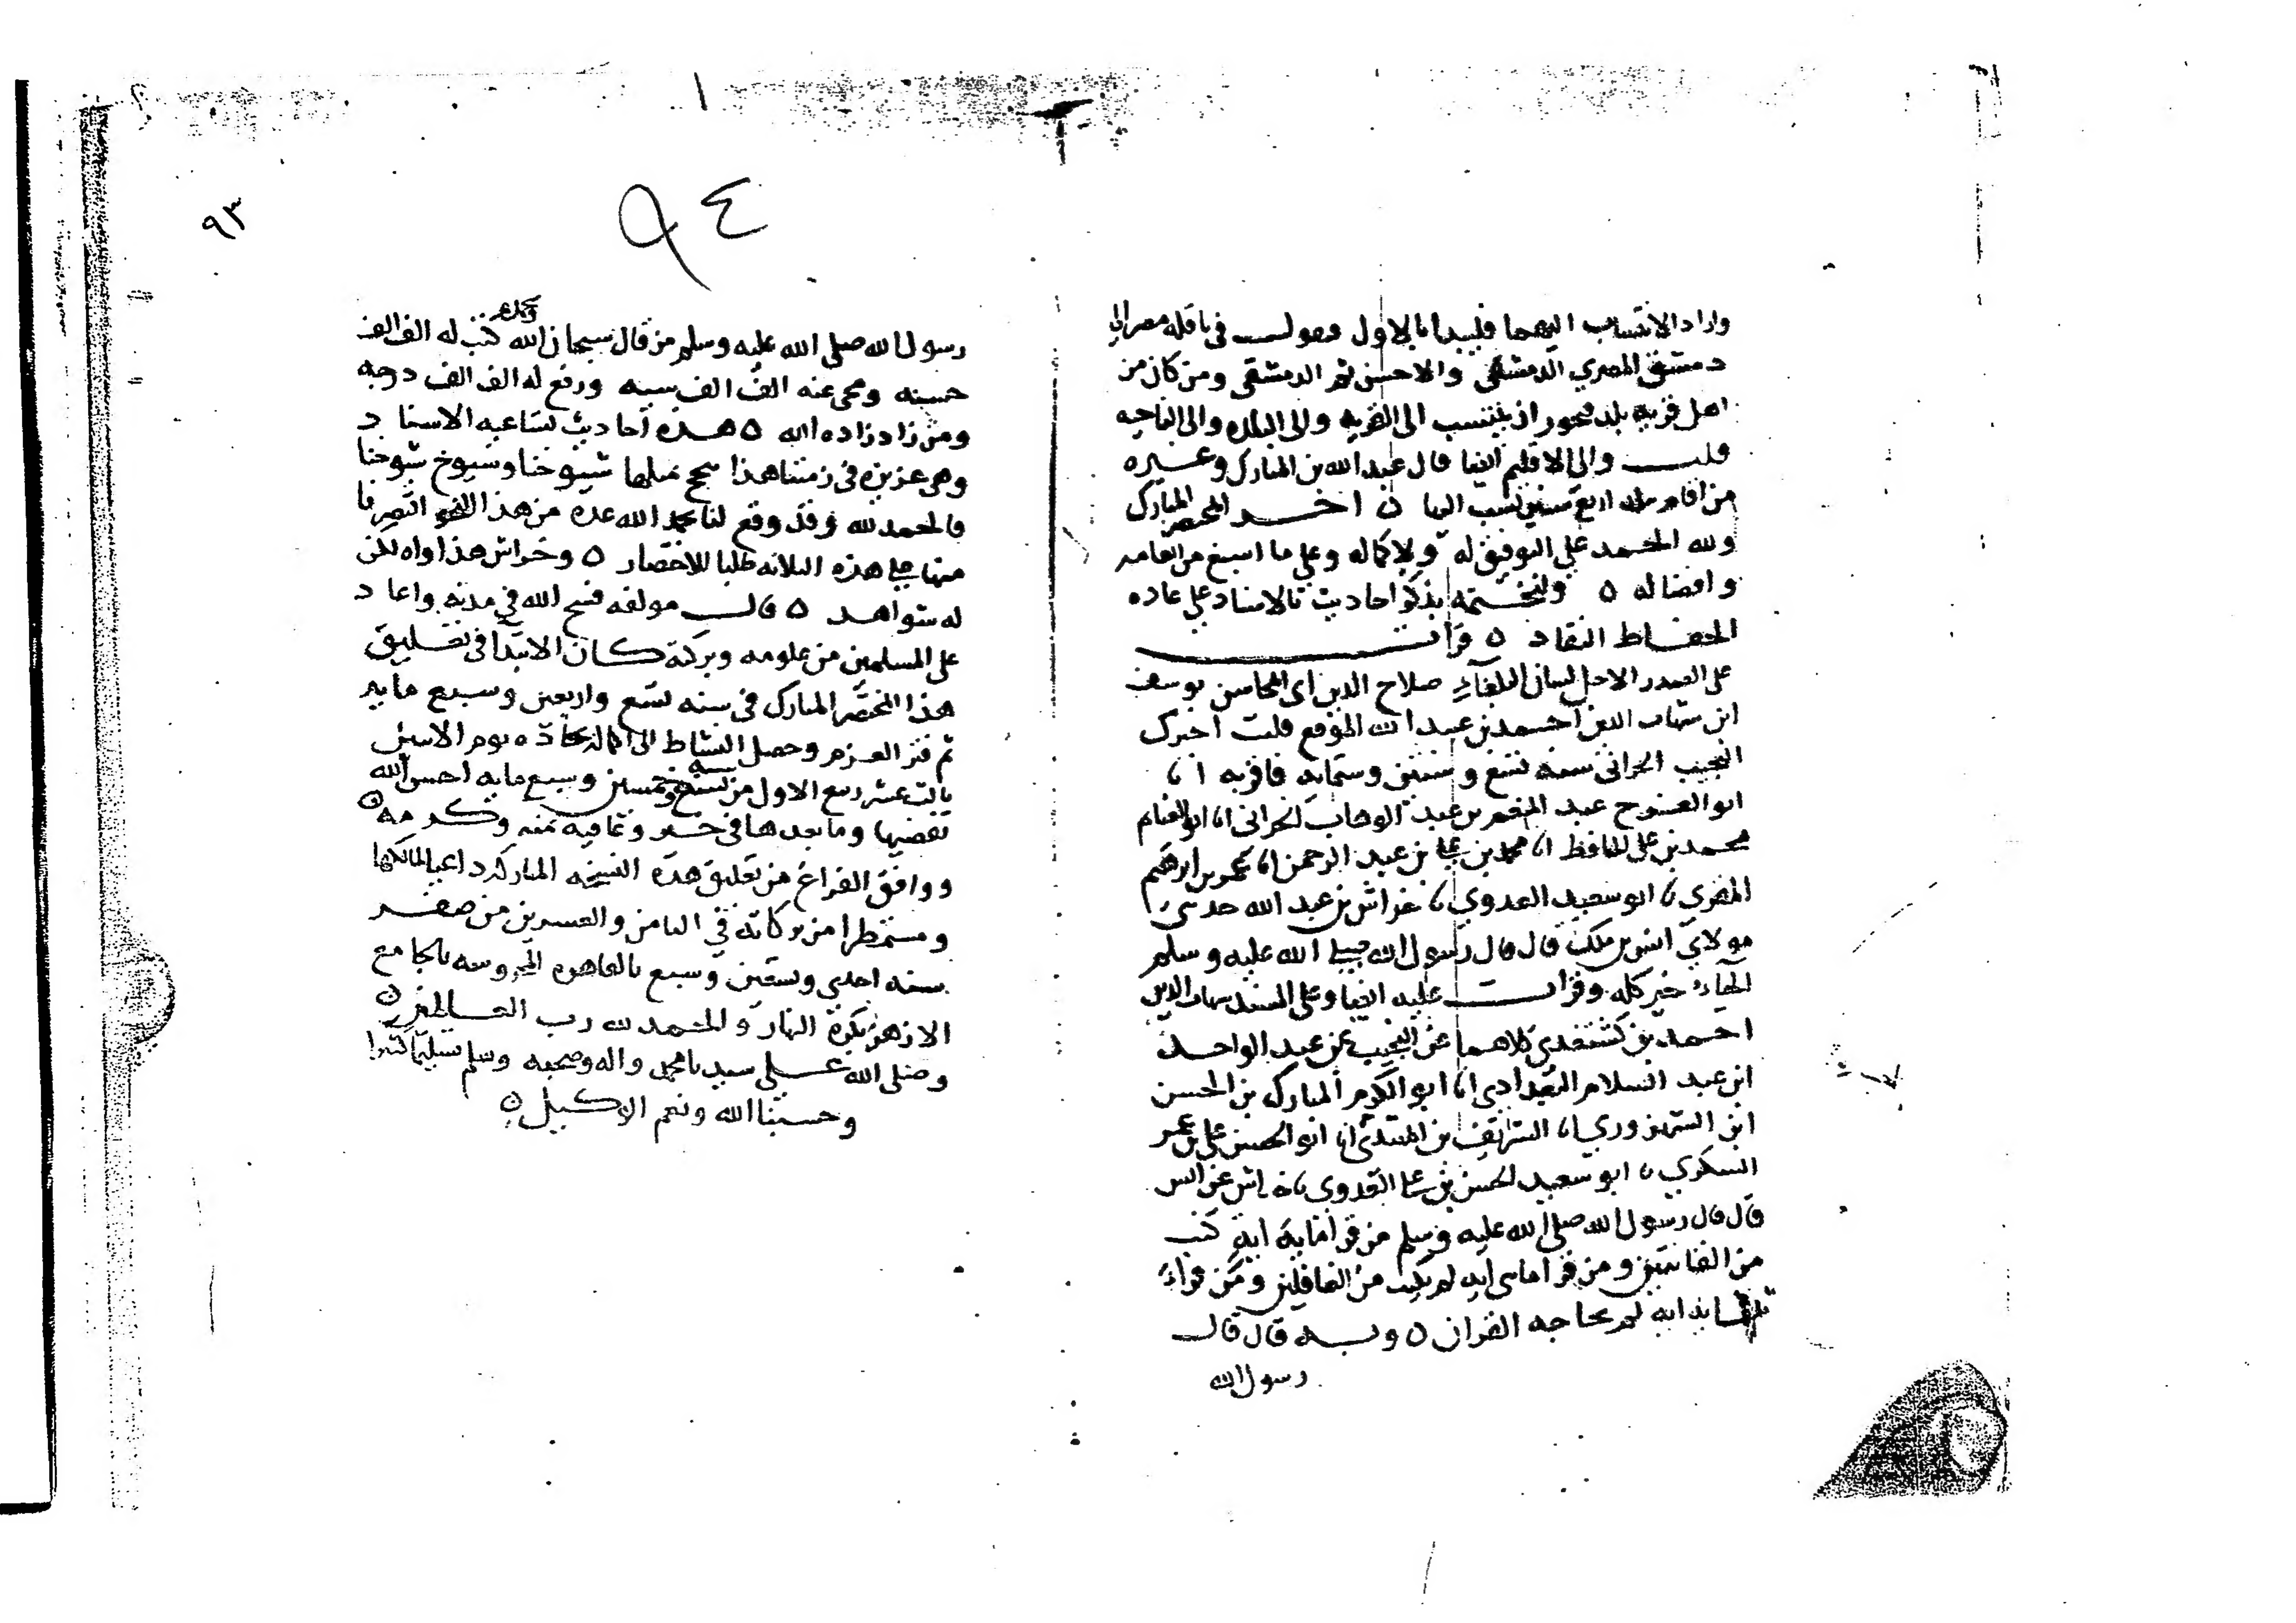 واراد الانتساب اليهما فليبدا بالاول وهولـــ في ناقله مصر الى
دمشق المصري الدمشقي والاحسن ثم الدمشقي ومن كان من
اهل قريه بلد فيجوز ان ينتسب الى القريه والى البلده والى الناحيه
قلـــت والى الاقليم ايضا قال عبد الله بن المبارك وغيره
من اقام ببلد اربع سنين نسب اليها ه اخـــر المختصر المبارك
ولله الحمد على التوفيق له ولاكماله وعلى ما اسبغ من انعامه
وافضاله ه ولنختمه بذكر احاديث بالاسناد على عاده
الحفاظ النقاد ه قراتـــ
على الصدر الاجل لسان البلغاء صلاح الدين ابى المحاسن يوسف
ابن شهاب الدين احمد بن عبد الله الموقع قلت اخبرك
النجيب الحراني سنه تسع وستين وستمايه فاقر به انا
ابو الفتوح عبد المنعم بن عبد الوهاب الحراني انا ابو الغنايم
محمد بن علي الحافظ انا محمد بن علي بن عبد الرحمن انا عمر بن ابرهيم
المقري نا ابو سعيد العدوي نا خراش بن عبد الله حدثني
مولاي انس بن ملك قال قال رسول الله صلى الله عليه وسلم
الحياء خير كله وقراتـــ عليه ايضا وعلى المسند شهاب الدين
احمد بن كشتغدي كلاهما عن النجيب عن عبد الواحد
ابن عبد السلام البغدادي انا ابو الكرم المبارك بن الحسن
ابن الشهرزوري انا الشريف بن المهتدي انا ابو الحسن علي بن عمر
السكري نا ابو سعيد الحسن بن علي العدوي نا خراش عن انس
قال قال رسول الله صلى الله عليه وسلم من قرا مايه ايه كتب
من القانتين ومن قرا مايتى ايه لم يكتب من الغافلين ومن قراء
ثلثمايه ايه لم يحاجه القران ه وبـــه قال قالـــ
رسول الله
٩٤
٩٣
رسول الله صلى الله عليه وسلم من قال سبحان الله وبحمده كتب له الف الف
حسنه ومحى عنه الف الف سيه ورفع له الف الف درجه
ومن زاد زاده الله ه هـــذه احاديث تساعيه الاسناد
وهي عزيزه في زمننا هذا سمع مثلها شيوخنا وشيوخ شيوخنا
فالحمد لله وقد وقع لنا بحمد الله عده من هذا النحو اقتصرنا
منها على هذه الثلاثه طلبا للاختصار ه وخراش هذا واه لكن
له شواهد ه قالـــ مولفه فسح الله في مدته واعاد
على المسلمين من علومه وبركته كـــان الابتدا في تعليق
هذا المختصر المبارك في سنه تسع واربعين وسبع مايه
ثم فتر العزم وحصل النشاط الى اكماله يوم الاثنين
ثالث عشر ربيع الاول من سنه تسع وخمسين وسبع مايه احسن الله
تقضيها وما بعدها في خير وعافيه بمنه وكرمه ه
ووافق الفراغ من تعليق هذه النسخه المباركه داعيا لمالكها
ومستمطرا من بركاته في الثامن والعشرين من صفـــر
سنه احدى وستين وسبع بالقاهره المحروسه بالجامع
الازهر بكره النهار والحمد لله رب العـــالمين ه
وصلى الله عـــلى سيدنا محمد واله وصحبه وسلم تسليما كثيرا
وحسبنا الله ونعم الاكيل ه